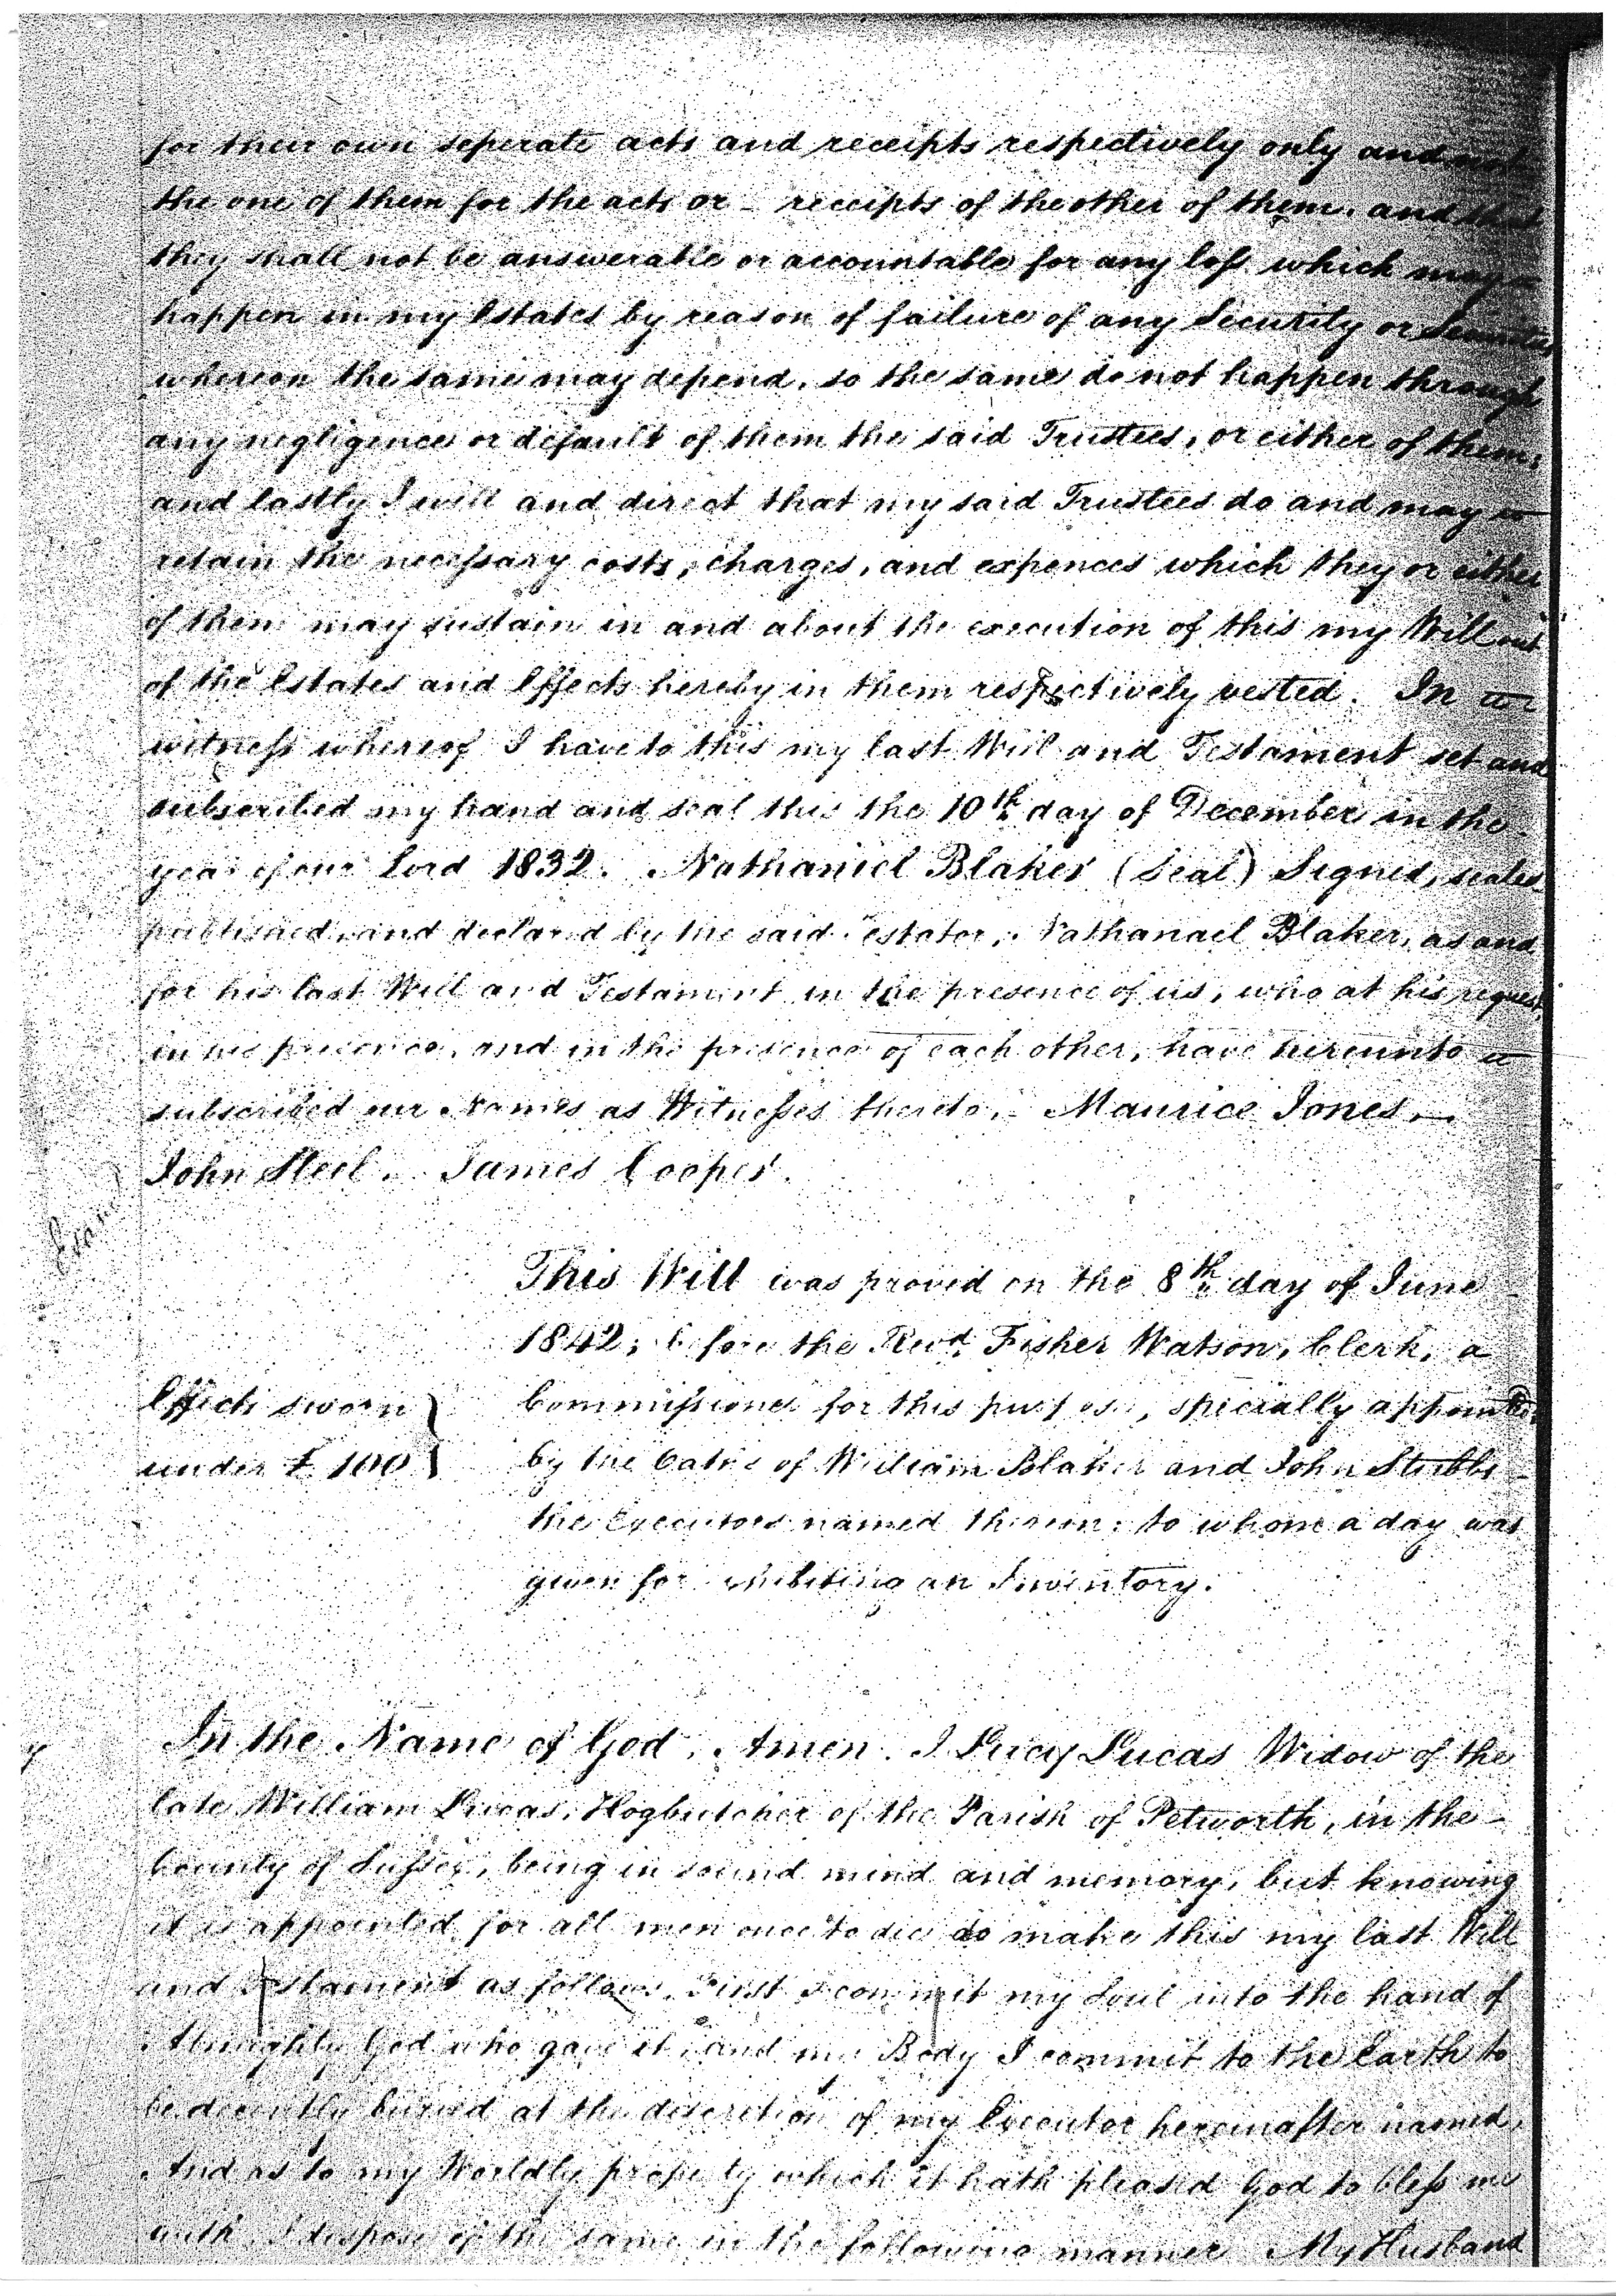 for their own seperate acts and receipts respectively only and not
the one of them for the acts or – receipts of the other of them. and that
they shall not be answerable or accountable for any loss which may –
happen in my Estates by reason of failure of any Security or Securities
whereon the same may depend, so the same do not happen through
any negligence or default of them the said Trustees, or either of them;
and lastly I will and direct that my said Trustees do and may
retain the necessary costs, charges, and expences which they or either
of them may sustain in and about the execution of this my Will out
of the Estates and Effects hereby in them respectively vested. In
witness whereof I have to this my last Will and Testament set and
subscribed my hand and seal this the 10th day of December in the
year of our Lord 1832. Nathaniel Blaker (Seal) Signed, sealed
published, and declared by the said Testator, Nathanael Blaker, as and
for his last Will and Testament in the presence of us, who at his request,
in his presence, and in the presence of each other, have hereunto
subscribed our Names as Witnesses thereto. – Maurice Jones. –
John Steel. James Cooper.
This Will was proved on the 8th day of June
1842, before the Revd. Fisher Watson, Clerk, a
Commissioner for this purpose, specially appointed
by the Oaths of William Blaker and John Stubbs
the Executors named therein: to whom a day was
given for exhibiting an Inventory.
Effects sworn
under £100
In the Name of God. Amen. I Lucy Lucas Widow of the
late William Lucas, Hogbutcher of the Parish of Petworth, in the –
County of Sussex, being in sound mind and memory, but knowing
it is appointed for all men once to die do make this my last Will
and Testament as follows. First I commit my Soul into the hand of
Almighty God who gave it, and my Body I commit to the Earth to
be decently buried at the discretion of my Executor hereinafter named.
And as to my Worldly property which it hath pleased God to bless me
with, I dispose of the same in the following manner My Husband